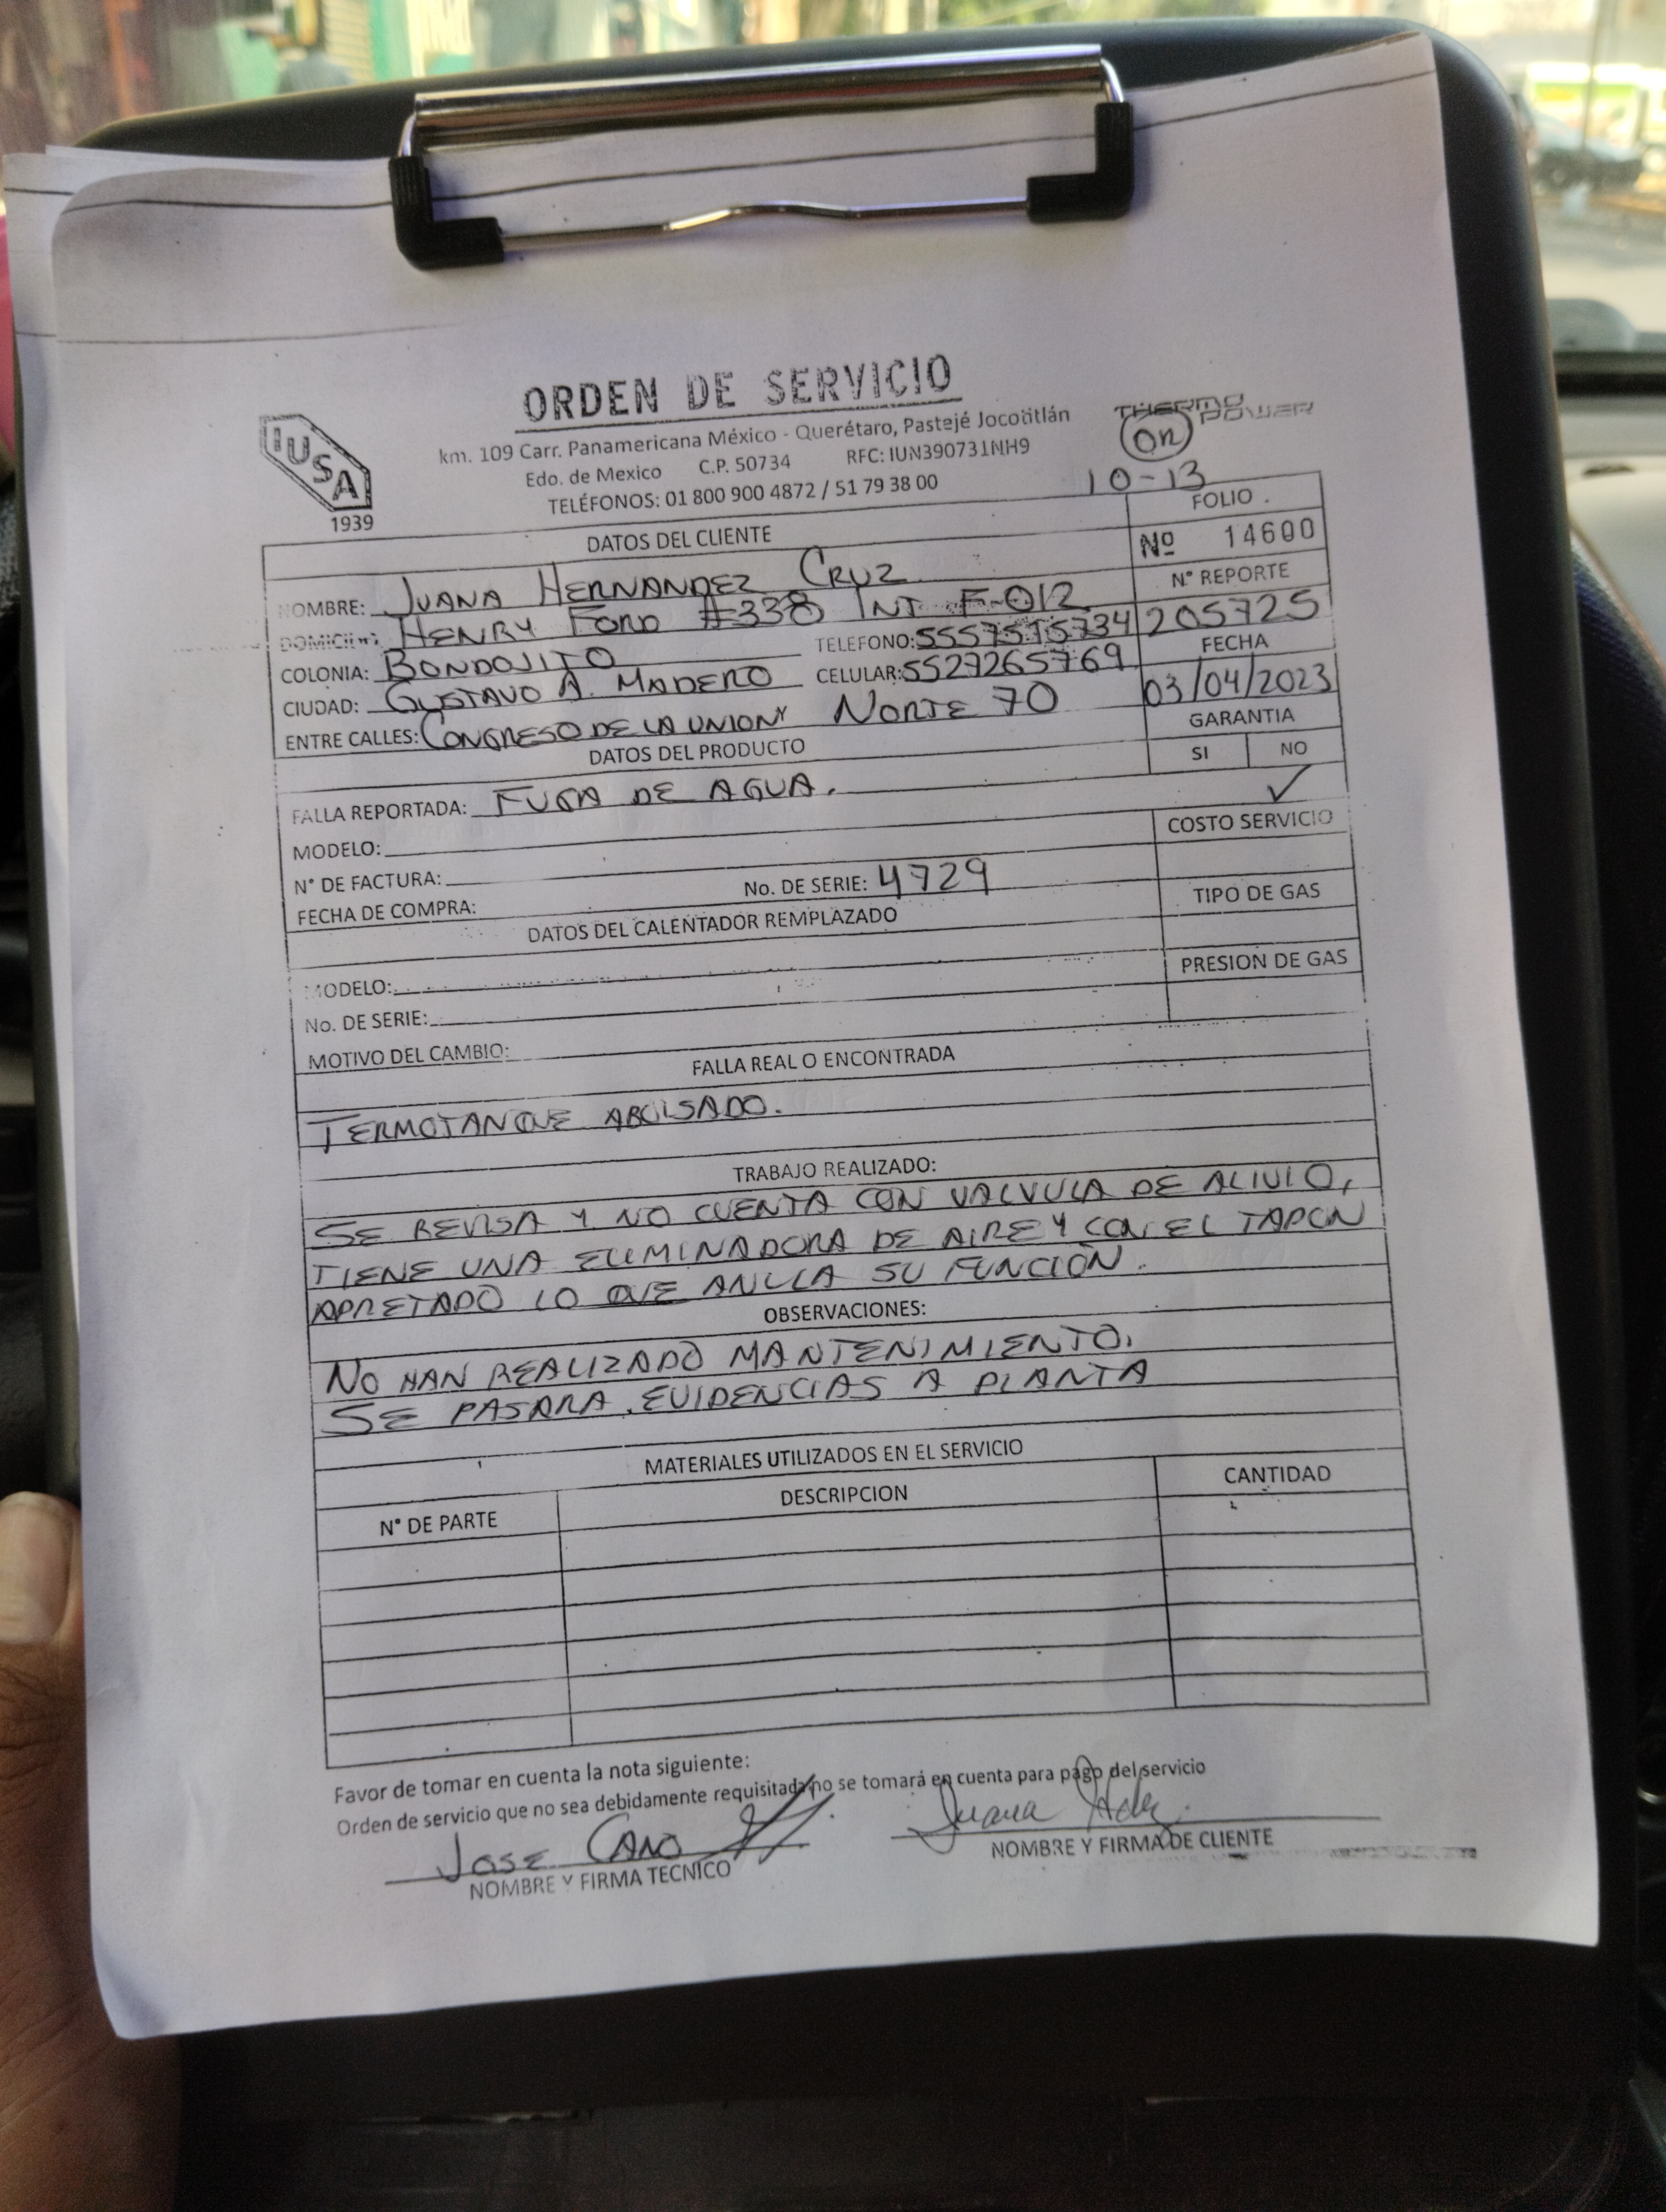 ORDEN DE SERVICIO
IUSA
1939
km. 109 Carr. Panamericana México - Querétaro, Pastejé Jocotitlán
Edo. de Mexico C.P. 50734 RFC: IUN390731NH9
TELÉFONOS: 01 800 900 4872 / 51 79 38 00
THERMO POWER
On
10-13
DATOS DEL CLIENTE
FOLIO
Nº 14600
NOMBRE: JUANA HERNANDEZ CRUZ
Nº REPORTE
205725
DOMICILIO: HENRY FORD #338 INT. F-012
COLONIA: BONDOJITO TELEFONO: 5557515734
FECHA
03/04/2023
CIUDAD: GUSTAVO A. MADERO CELULAR: 5527265769
ENTRE CALLES: CONGRESO DE LA UNION Y NORTE 70
GARANTIA
SI NO
✓
DATOS DEL PRODUCTO
FALLA REPORTADA: FUGA DE AGUA.
MODELO:
COSTO SERVICIO
N° DE FACTURA: No. DE SERIE: 4729
FECHA DE COMPRA:
TIPO DE GAS
DATOS DEL CALENTADOR REMPLAZADO
PRESION DE GAS
MODELO:
No. DE SERIE:
MOTIVO DEL CAMBIO:
FALLA REAL O ENCONTRADA
TERMOTANQUE ABOLSADO.
TRABAJO REALIZADO:
SE REVISA Y NO CUENTA CON VALVULA DE ALIVIO,
TIENE UNA ELIMINADORA DE AIRE Y CON EL TAPON
APRETADO LO QUE ANULLA SU FUNCIÓN.
OBSERVACIONES:
NO HAN REALIZADO MANTENIMIENTO.
SE PASARA EVIDENCIAS A PLANTA
MATERIALES UTILIZADOS EN EL SERVICIO
N° DE PARTE DESCRIPCION CANTIDAD
Favor de tomar en cuenta la nota siguiente:
Orden de servicio que no sea debidamente requisitada no se tomará en cuenta para pago del servicio
JOSE CANO
NOMBRE Y FIRMA TECNICO
Juana Hdz.
NOMBRE Y FIRMA DE CLIENTE